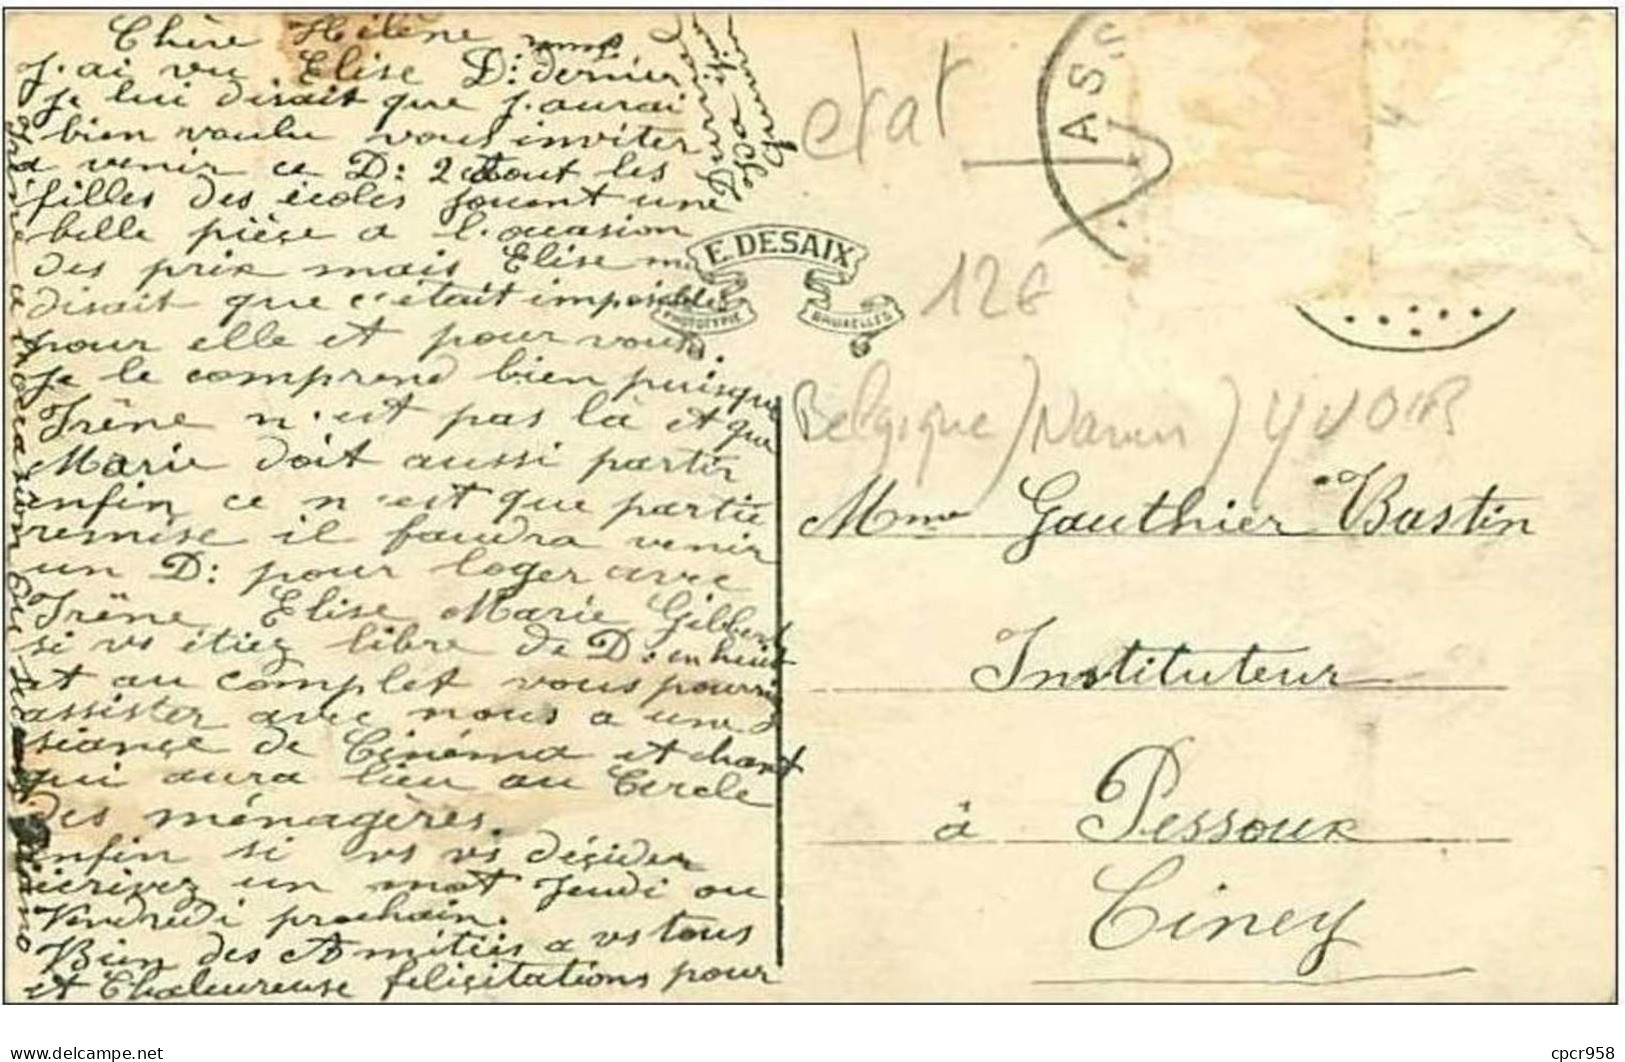 Chère Hélène
J'ai vu Elise D: dernier
Je lui disait que j'aurai
bien voulu vous inviter
a venir ce D: 2 Aout les
filles des écoles jouent une
belle pièçe a l'occasion
des prix mais Elise me
disait que c'était imposible
pour elle et pour vous.
Je le comprend bien puisque
Irène n'est pas là et que
Marie doit aussi partir
enfin ce n'est que partie
remise il faudra venir
un D: pour loger avec
Irène Elise Marie Gilbert
si vs étiez libre de D: en huit
et au complet vous pourriez
assister avec nous a une
séançe de Cinéma et chant
qui aura lieu au Cercle
des ménagères.
enfin si vs vs déçider
écrivez un mot Jeudi ou
Vendredi prochain.
Bien des Amitiés a vs tous
et Chaleureuse féliçitations pour
E. DESAIX
PHOTOTYPIE
BRUXELLES
etat
12€
Belgique / Namur / YVOIR
AS
Mme Gauthier-Bastin
Instituteur
à Pessoux
Ciney
cpcr958